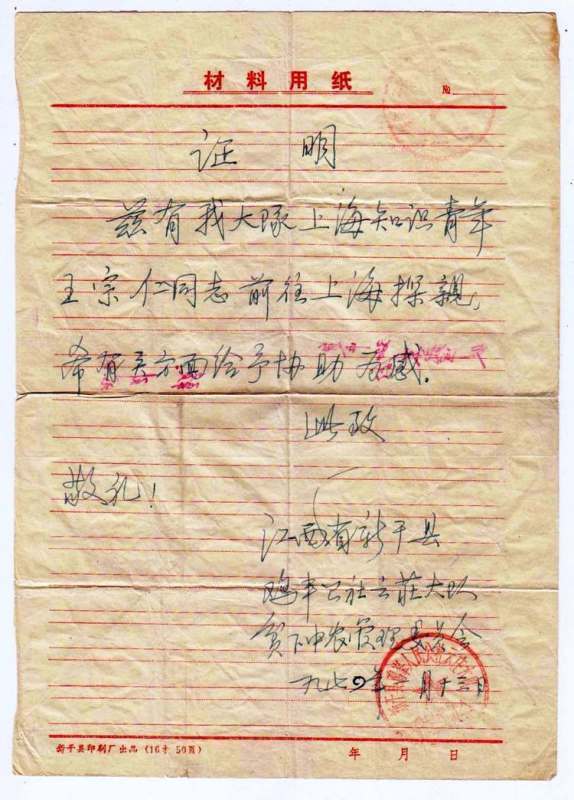 材料用纸
№
证 明
兹有我大队上海知识青年
王宗仁同志前往上海探親,
希有关方面给予协助为感.
此致
敬礼!
江西省新干县
鸡丰公社云莊大队
贫下中农管理委员会
九七〇年 月十三日
新干县印刷厂出品(16才 50页)
年 月 日